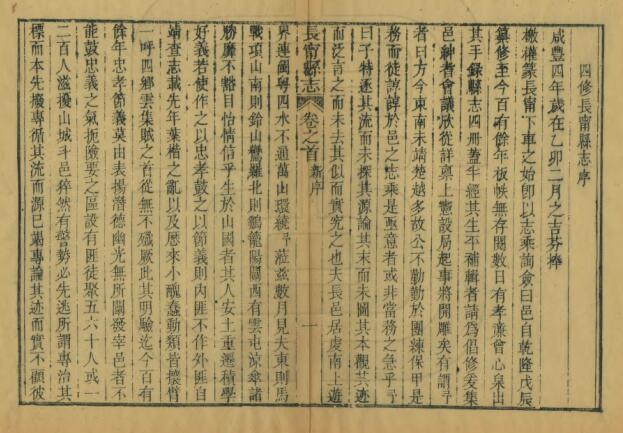 四修長甯縣志序
咸豐四年歲在乙卯二月之吉芬捧
檄權篆長甯下車之始卽以志乘詢僉曰邑自乾隆戊辰
纂修至今百有餘年板帙無存閱數日有孝廉曾心泉出
其手錄縣志四冊蓋半經其生平補輯者請為倡修爰集
邑紳耆會議欣從詳稟上憲設局起事將開雕矣有謂予
者曰方今東南未靖楚越多故公不勤勤於團練保甲是
務而徒諄諄於邑之志乘是亟意者或非當務之急乎予
曰子特逐其流而未探其源論其末而未圖其本觀其迹
而泛言之而未去其似而實究之也夫長邑居虔南上遊
長甯縣志
卷之首
新序
一
界連閩粵四水不通萬山環繞予蒞茲數月見夫東則馬
戰項山南則鈴山鸞羅北則鶴龍陽關西有雲屯涼傘諸
勝靡不豁目怡情信乎生於山國者其人安土重遷積學
好義若使作之以忠孝鼓之以節義則內匪不作外匪自
靖查志載先年葉楷之亂以及歷來小醜蠢動類皆攘臂
一呼四鄉雲集賊之首從無不殲厥此其明驗迄今百有
餘年忠孝節義莫由表揚潛德幽光無所闡發宰邑者不
能鼓忠義之氣扼險要之區設有匪徒聚五六十人或一
二百人滋擾山城斗邑猝然有警勢必先逃所謂專治其
標而本先撥專循其流而源已竭專論其迹而實不顧彼